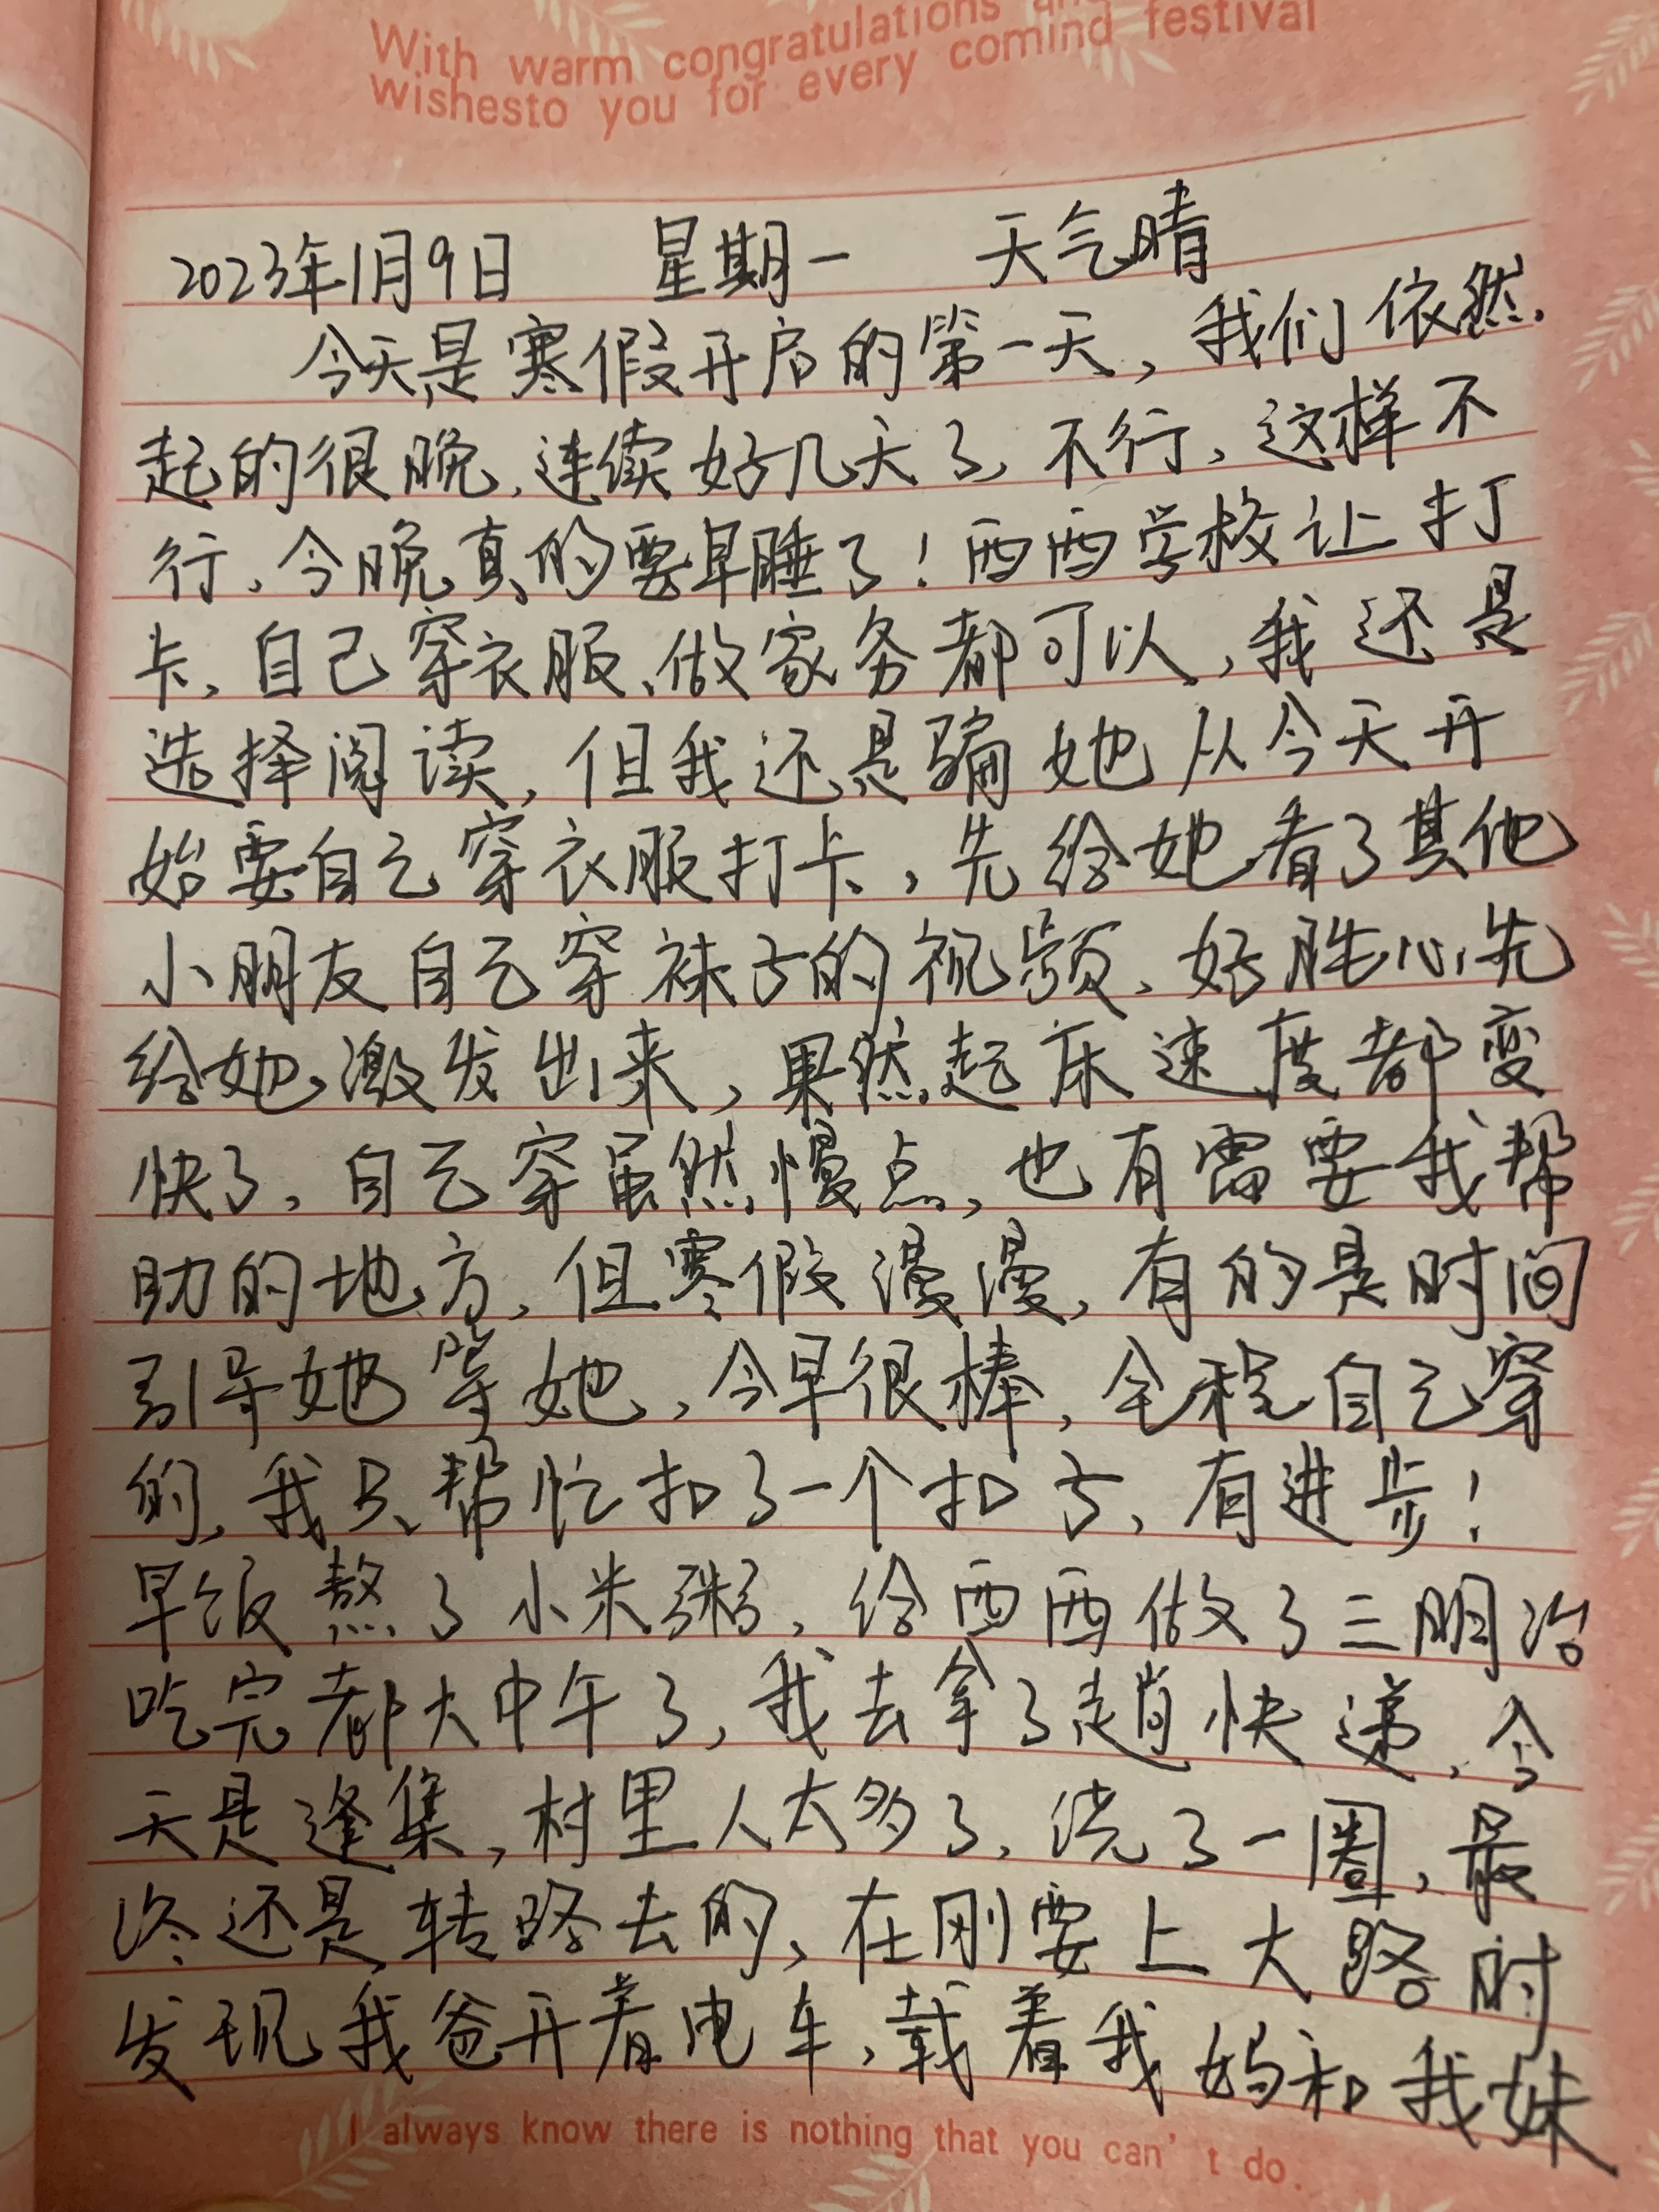 With warm congratulations an
wishesto you for every comind festival
2023年1月9日 星期一 天气晴
今天是寒假开启的第一天,我们依然
起的很晚,连续好几天了,不行,这样不
行,今晚真的要早睡了!西西学校让打
卡,自己穿衣服、做家务都可以,我还是
选择阅读,但我还是骗她从今天开
始要自己穿衣服打卡,先给她看了其他
小朋友自己穿袜子的视频,好胜心先
给她激发出来,果然起床速度都变
快了,自己穿虽然慢点,也有需要我帮
助的地方,但寒假漫漫,有的是时间
引导她等她,今早很棒,全程自己穿
的,我只帮忙扣了一个扣子,有进步!
早饭熬了小米粥,给西西做了三明治
吃完都大中午了,我去拿了趟快递,今
天是逢集,村里人太多了,绕了一圈,最
终还是转路去的,在刚要上大路时
发现我爸开着电车,载着我妈和我妹
I always know there is nothing that you can't do.